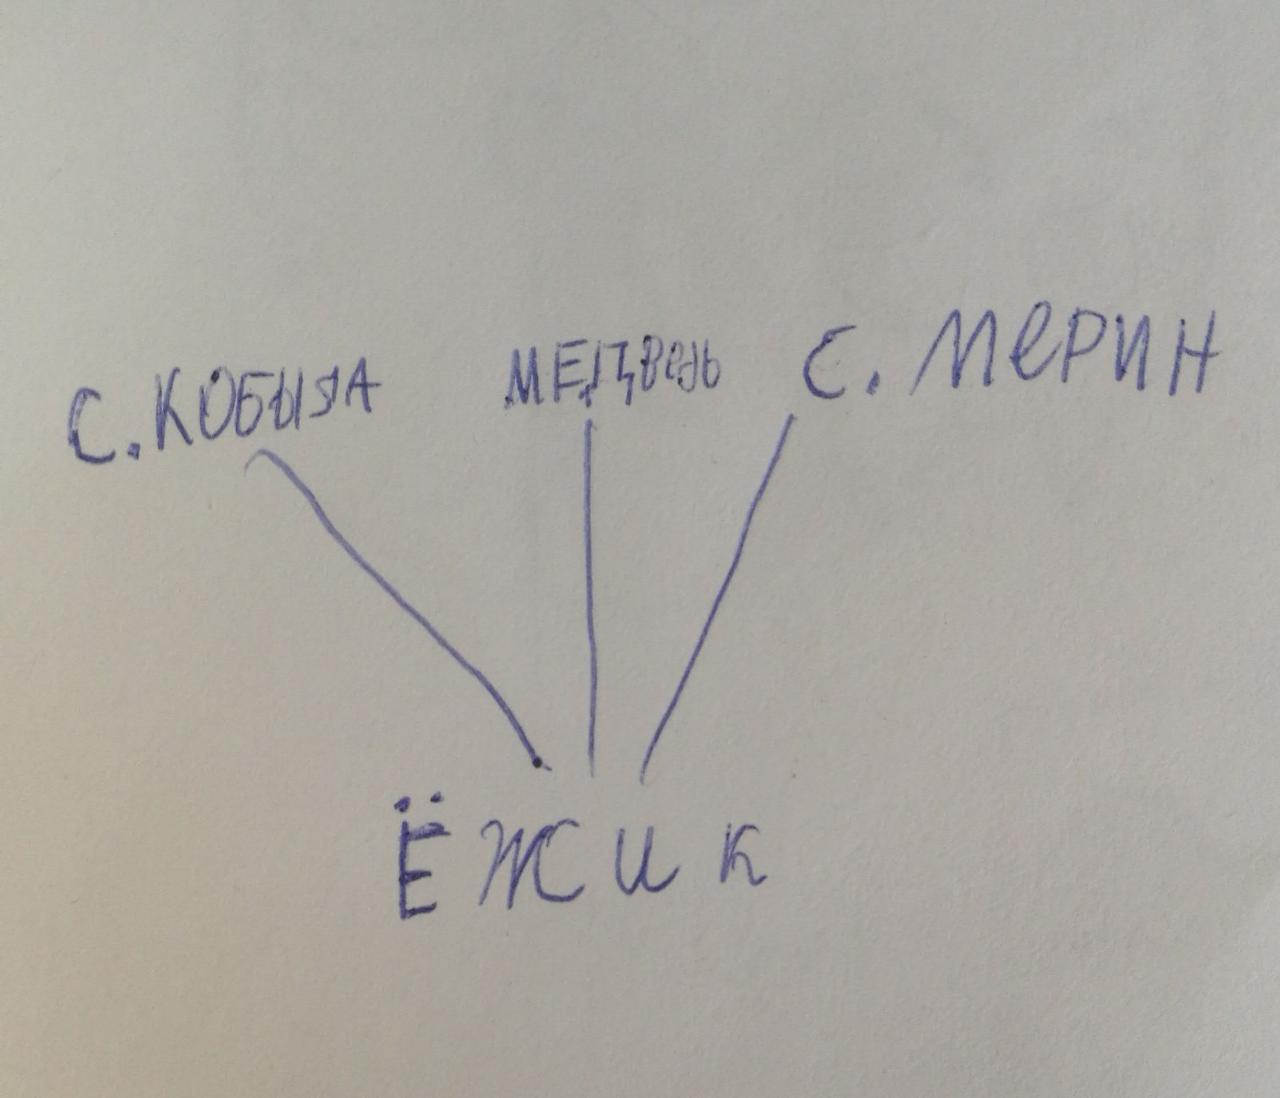 С. КОБЫЛА МЕДВедь С. МеРИН
ЁЖИК